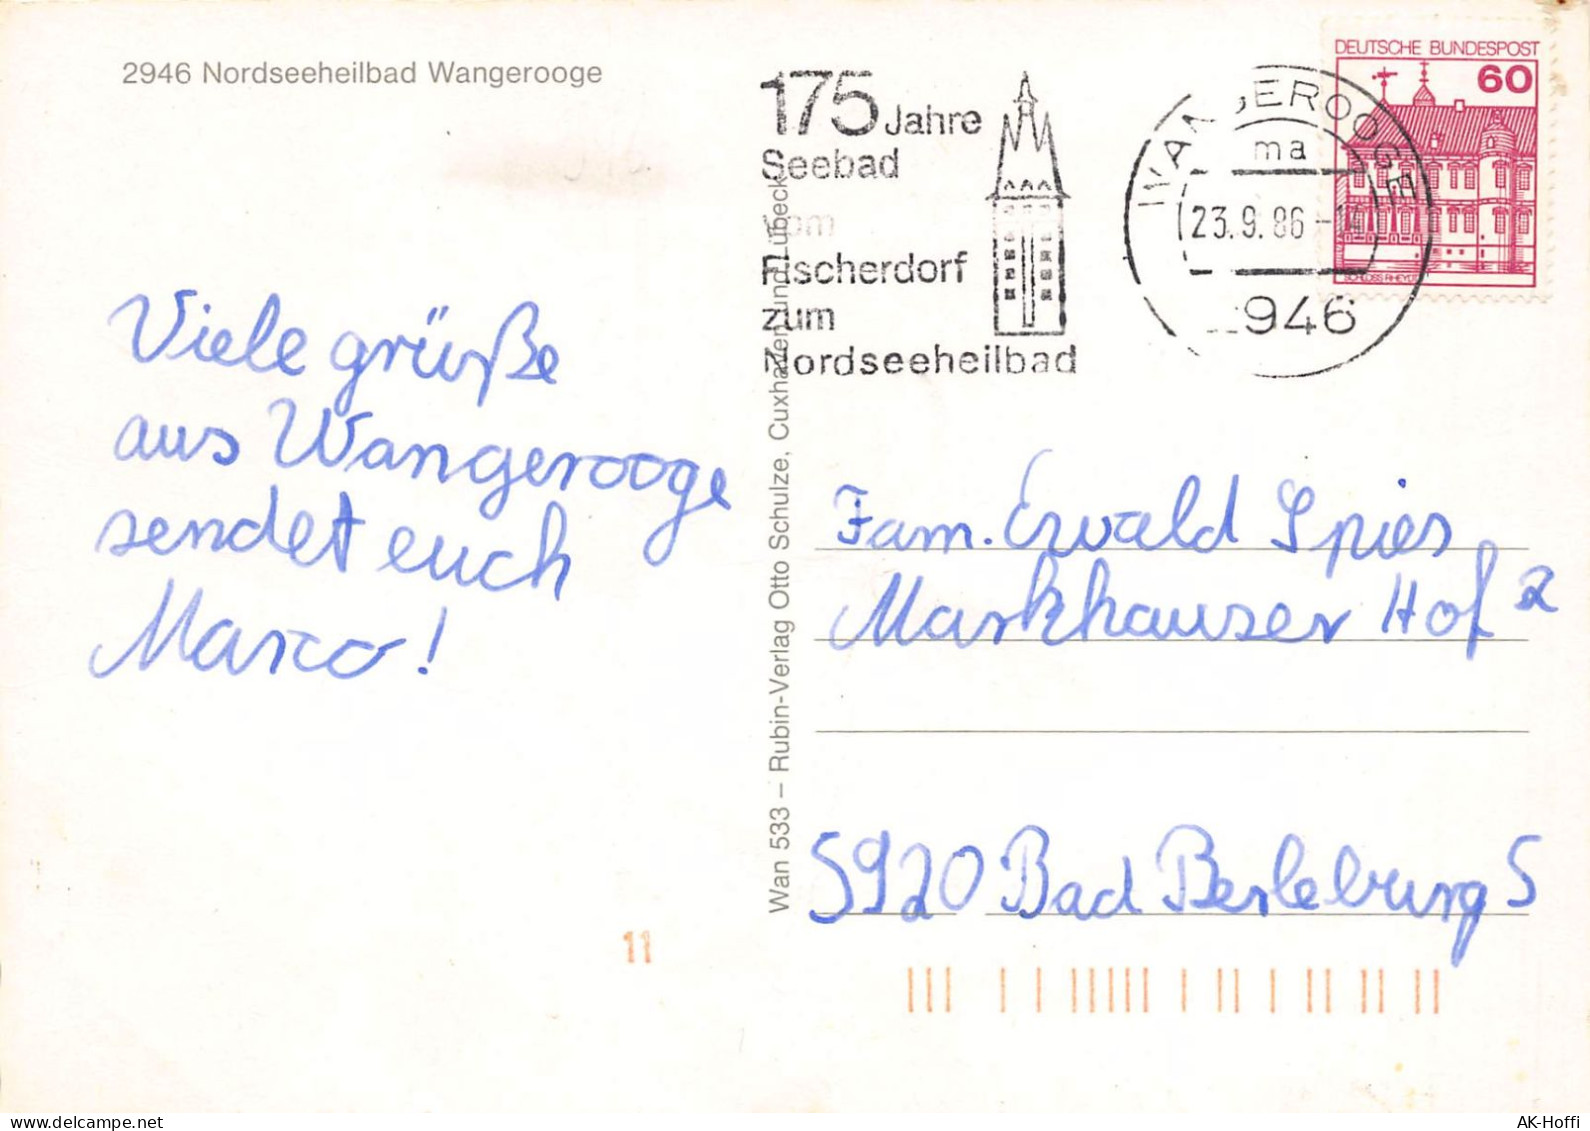 2946 Nordseeheilbad Wangerooge
Viele grüße
aus Wangerooge
sendet euch
Marco!
11
Wan 533 – Rubin-Verlag Otto Schulze, Cuxhaven und Lübeck
175 Jahre
Seebad
vom
Fischerdorf
zum
Nordseeheilbad
WANGEROOGE
ma
23.9.86-14
2946
DEUTSCHE BUNDESPOST
60
SCHLOSS RHEYDT
Fam. Ewald Spies
Markhauser Hof 2
5920 Bad Berleburg 5
delcampe.net
AK-Hoffi